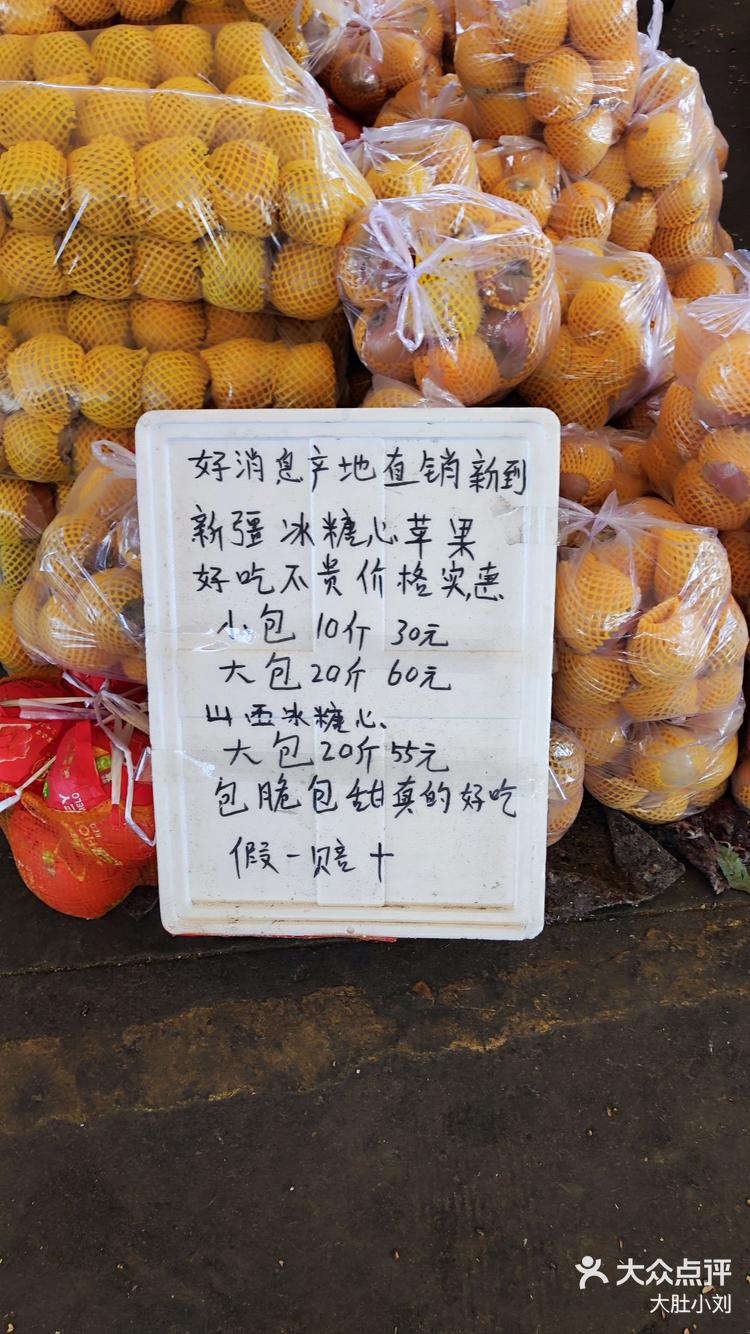 好消息产地直销新到
新疆冰糖心苹果
好吃不贵价格实惠
小包 10斤 30元
大包 20斤 60元
山西冰糖心、
大包 20斤 55元
包脆包甜真的好吃
假一赔十
大众点评
大肚小刘